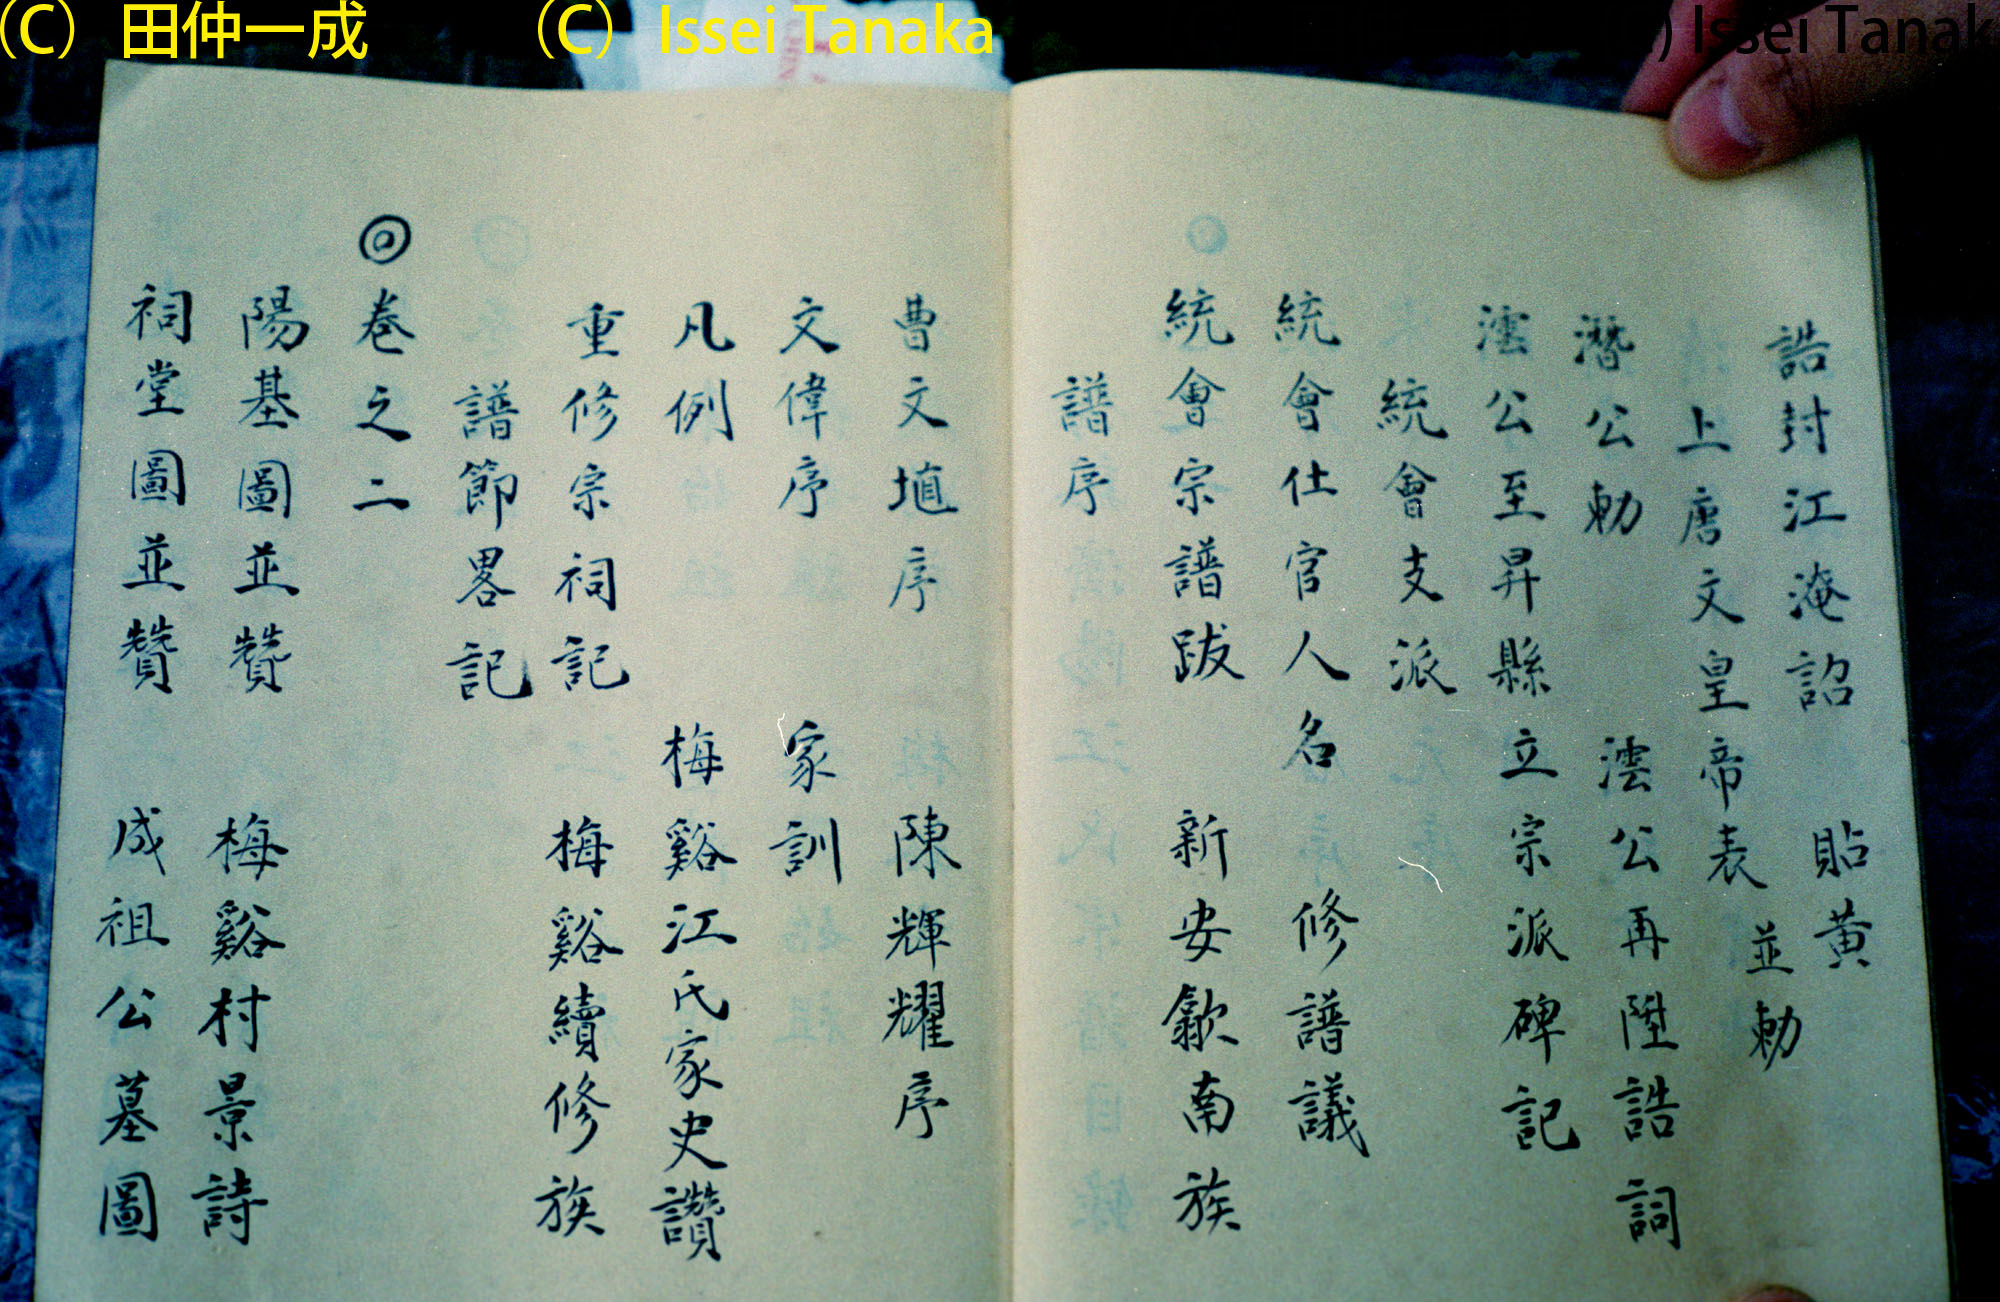 (C) 田仲一成
(C) Issei Tanaka
) Issei Tanak
誥封江淹詔 貼黃
上唐文皇帝表 並勅
潛公勅 澐公再陞誥詞
澐公至昇縣立宗派碑記
統會支派
統會仕官人名 修譜議
統會宗譜跋 新安歙南族
譜序
曹文埴序 陳輝耀序
文偉序 家訓
凡例 梅谿江氏家史讚
重修宗祠記 梅谿續修族
譜節畧記
◎卷之二
陽基圖並贊 梅谿村景詩
祠堂圖並贊 成祖公墓圖